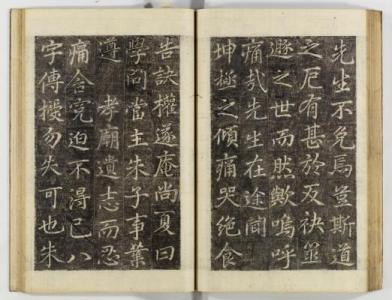 先生不免焉豈斯道
之厄有甚於反袂並
遯之世而然歟嗚呼
痛哉先生在途聞
坤極之傾痛哭絶食
告訣權遂庵尚夏曰
學問當主朱子事業
遵孝廟遺志而忍
痛含寃迫不得已八
字傳授勿失可也朱